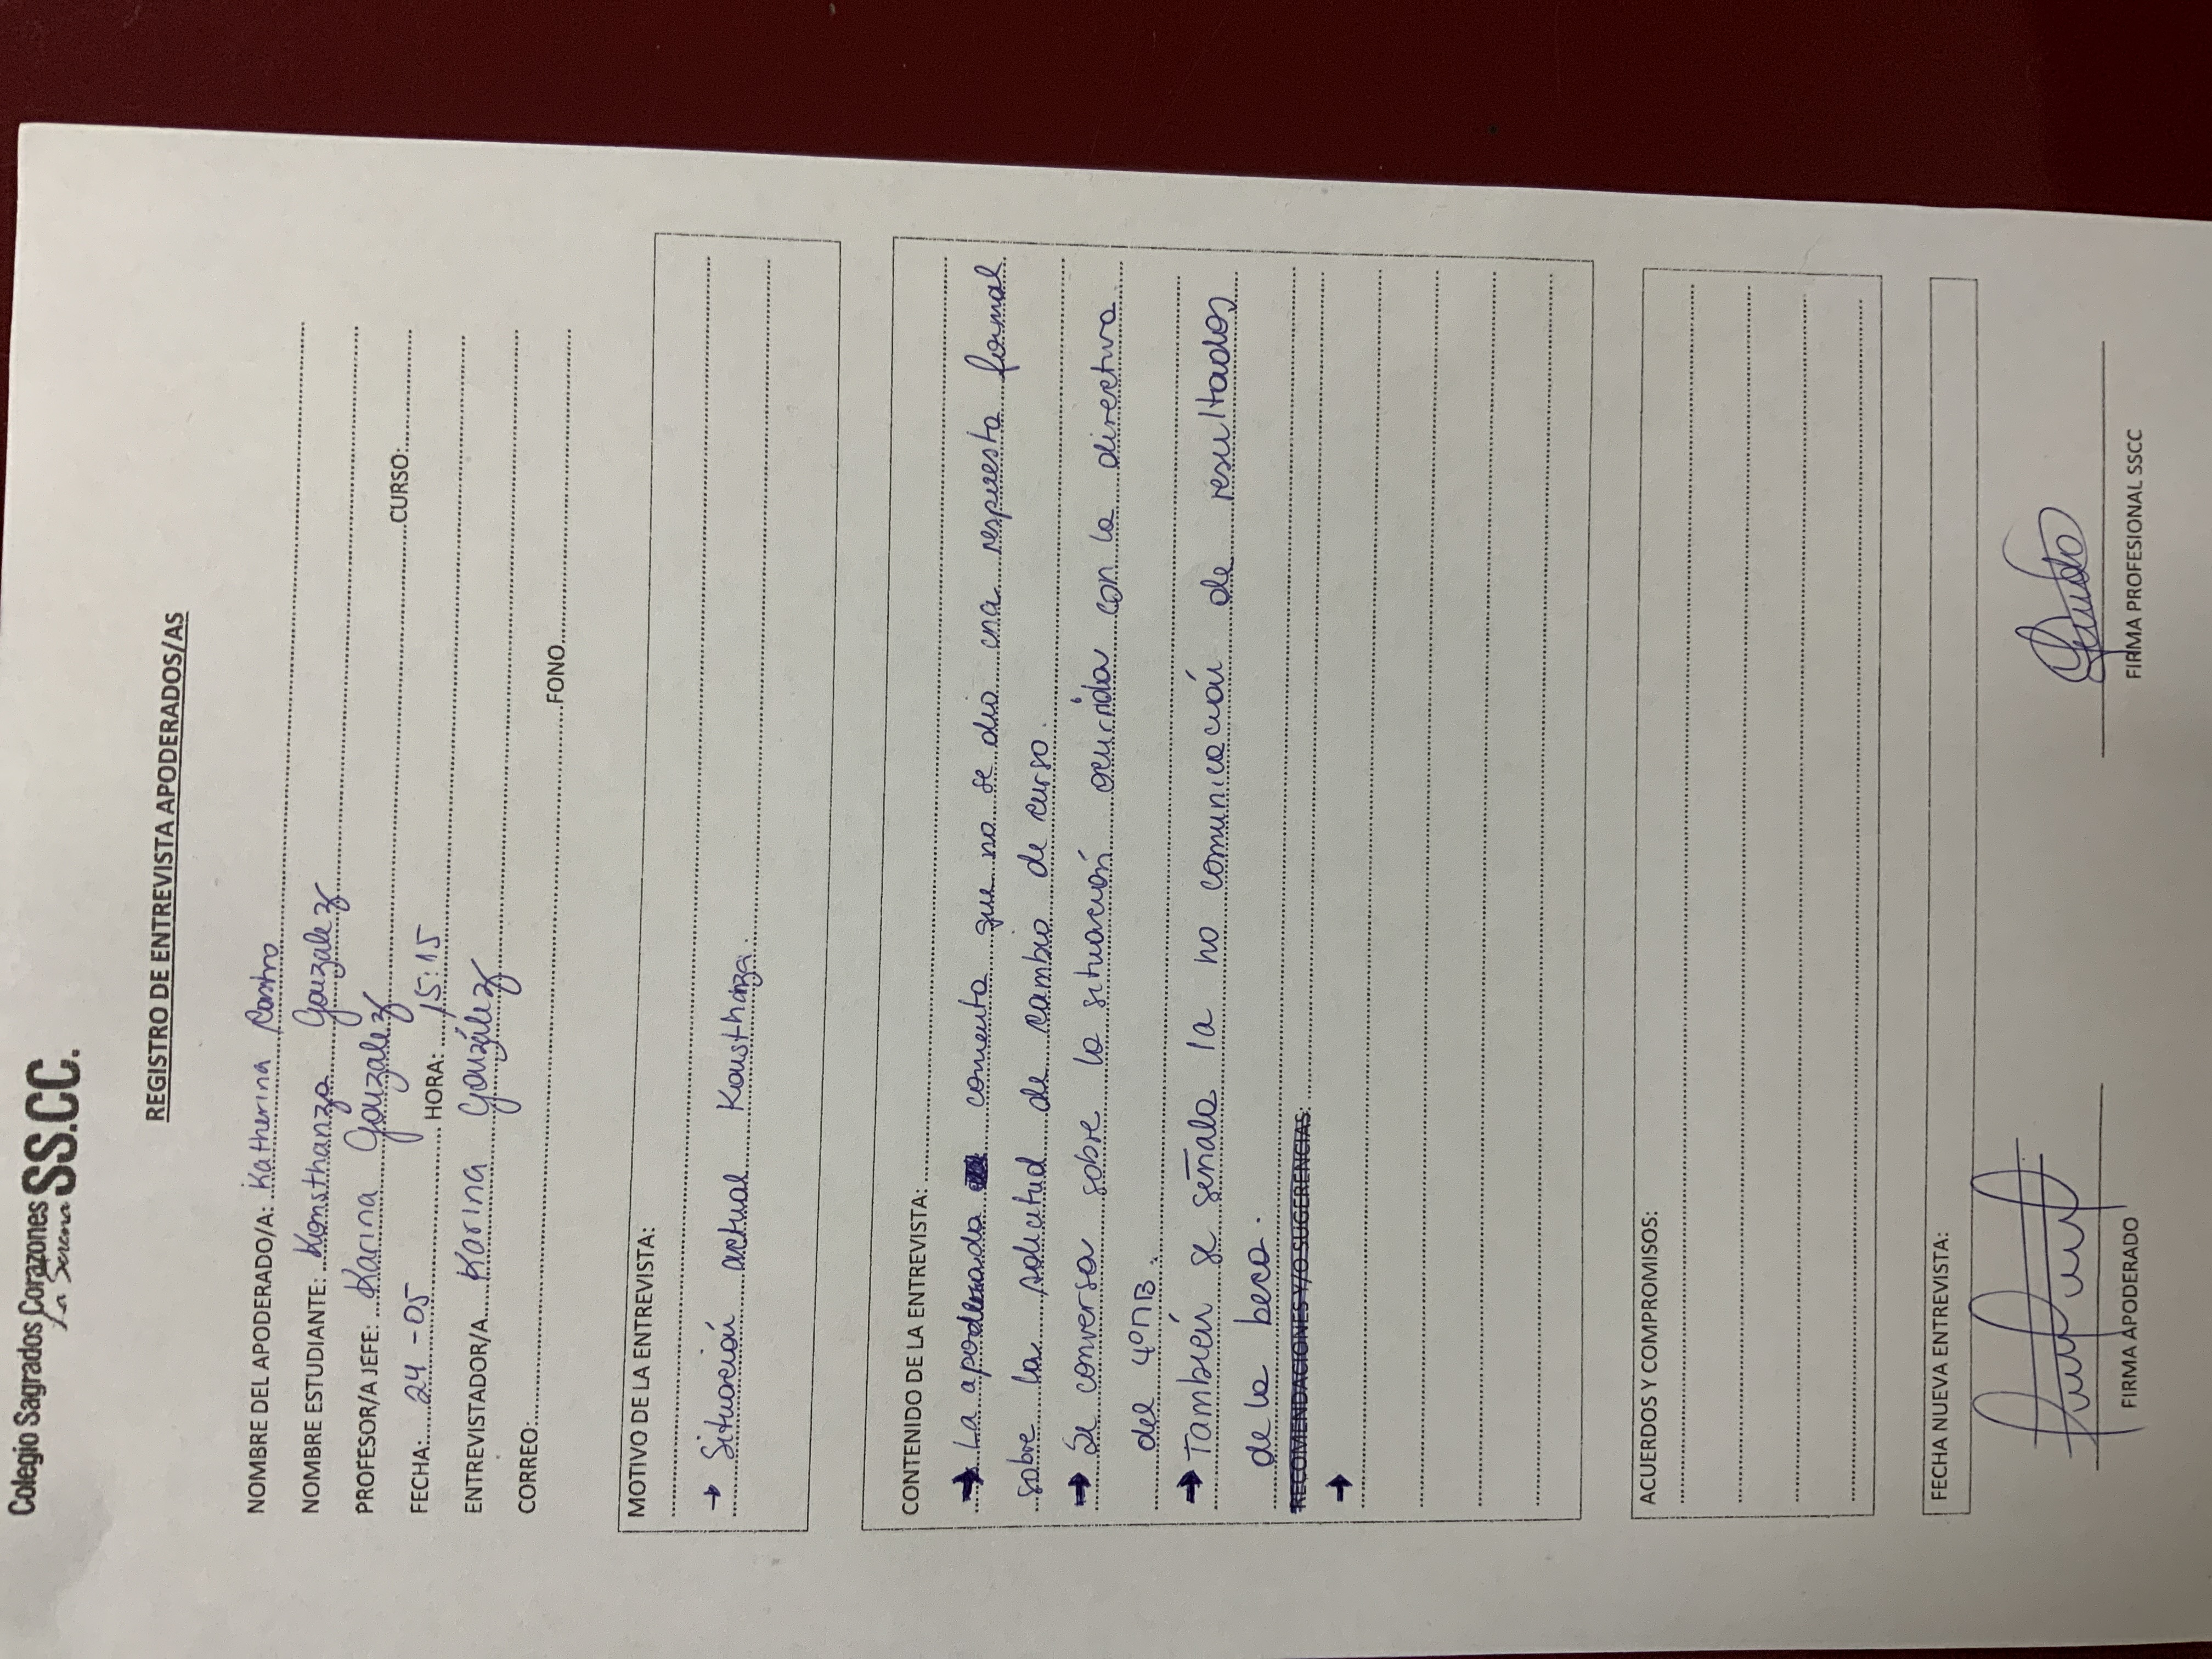 Colegio Sagrados Corazones SS.CC.
La Serena
REGISTRO DE ENTREVISTA APODERADOS/AS
NOMBRE DEL APODERADO/A: Katherina Castro
NOMBRE ESTUDIANTE: Konsthanza Gonzalez
PROFESOR/A JEFE: Karina Gonzalez CURSO:
FECHA: 24-05 HORA: 15:15
ENTREVISTADOR/A Karina González
CORREO: FONO
MOTIVO DE LA ENTREVISTA:
→ Situación actual Konsthanza.
CONTENIDO DE LA ENTREVISTA:
→ La apoderada comenta que no se dio una respuesta formal
sobre la solicitud de cambio de curso.
→ Se conversa sobre la situación ocurrida con la directiva
del 4ºMB.
→ También se señala la no comunicación de resultados
de la beca.
RECOMENDACIONES Y/O SUGERENCIAS:
→
ACUERDOS Y COMPROMISOS:
FECHA NUEVA ENTREVISTA:
FIRMA APODERADO FIRMA PROFESIONAL SSCC